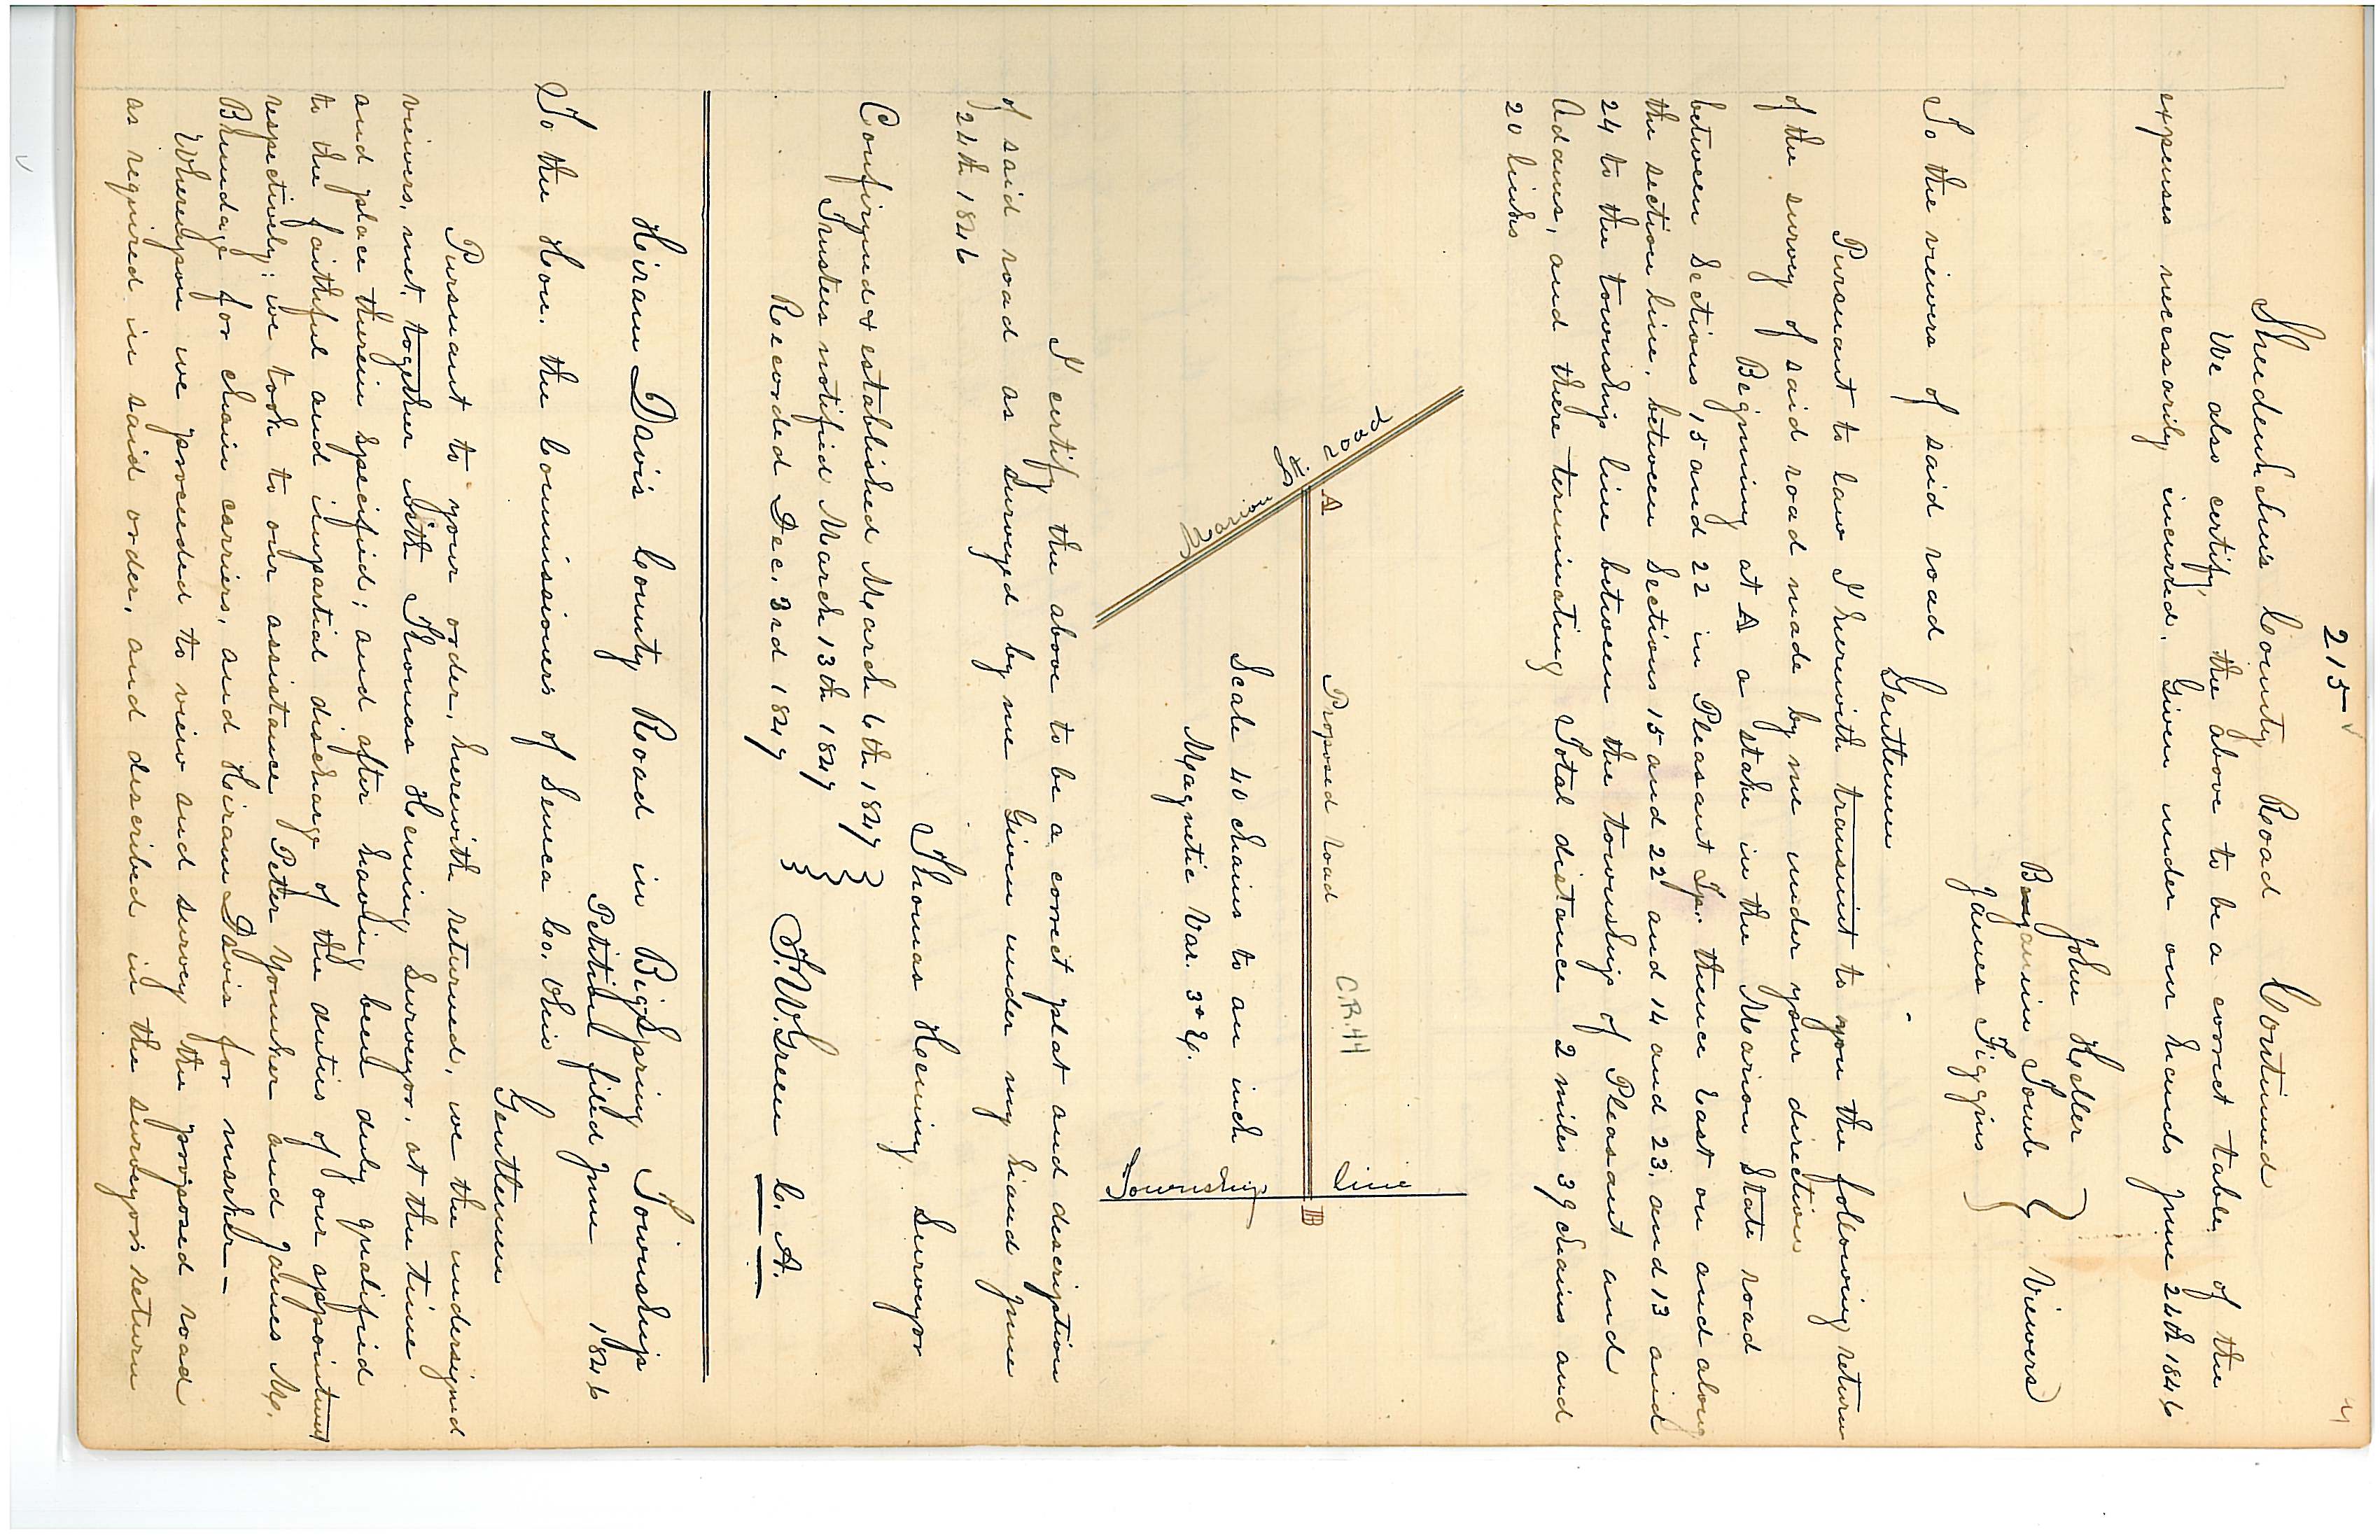 215
Shedenhelm's County Road Continued
We also certify, the above to be a correct table, of the
expenses necessarily incurred. Given under our hands June 24th 1846
John Heller
Benjamin Toub } Viewers
James Figgins
To the viewers of said road
Gentlemen
Pursuant to law I herewith transmit to you the following return
of the survey of said road made by me under your direction
Beginning at A a stake in the Marion State road
between Sections 15 and 22 in Pleasant Tp. thence East on and along
the section line, between Sections 15 and 22 and 14 and 23, and 13 and
24 to the township line between the townships of Pleasant and
Adams, and there terminating Total distance 2 miles 39 chains and
20 links
C.R. 44
Proposed road
A
B
Marion St. road
Township line
Scale 40 chains to an inch
Magnetic Var. 3° E.
I certify the above to be a correct plat and description
of said road as surveyed by me Given under my hand June
24th 1846
Thomas Heming Surveyor
Confirmed & established March 6th 1847 }
Trustees notified March 13th 1847 }
Recorded Dec. 3rd 1847 } F.W. Green C. A.
Hiram Davis County Road in Big Spring Township
Petition filed June 1846
To the Hon. the Commissioners of Seneca Co. Ohio
Gentlemen
Pursuant to your order, herewith returned, we the undersigned
viewers, met, together with Thomas Heming Surveyor, at the time
and place therein specified; and after having been duly qualified
to the faithful and impartial discharge of the duties of our appointment
respectively; we took to our assistance Peter Younker and James M.
Brundage for chain carriers, and Hiram Davis for marker—
Whereupon we proceeded to view and survey the proposed road
as required in said order, and described in the surveyors return